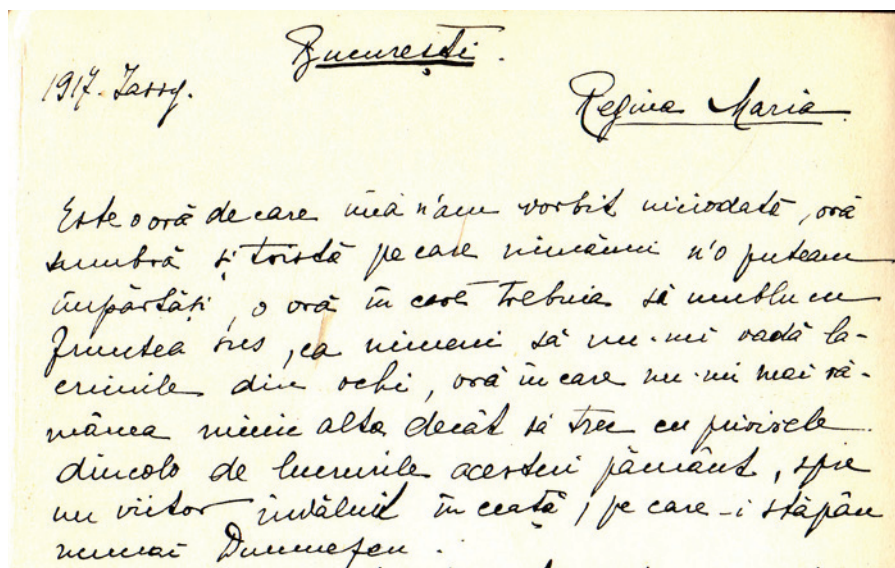 București.
1917. Jassy.
Regina Maria.
Este o oră de care încă n'am vorbit niciodată, oră
sumbră și tristă pe care nimănui n'o puteam
împărtăși, o oră în care trebuia să umblu cu
fruntea sus, ca nimeni să nu-mi vadă la-
crimile din ochi, oră în care nu-mi mai ră-
mânea nimic alta decât să trec cu privirele
dincolo de lucrurile acestui pământ, spre
un viitor învăluit în ceață, pe care-i stăpân
numai Dumnezeu.